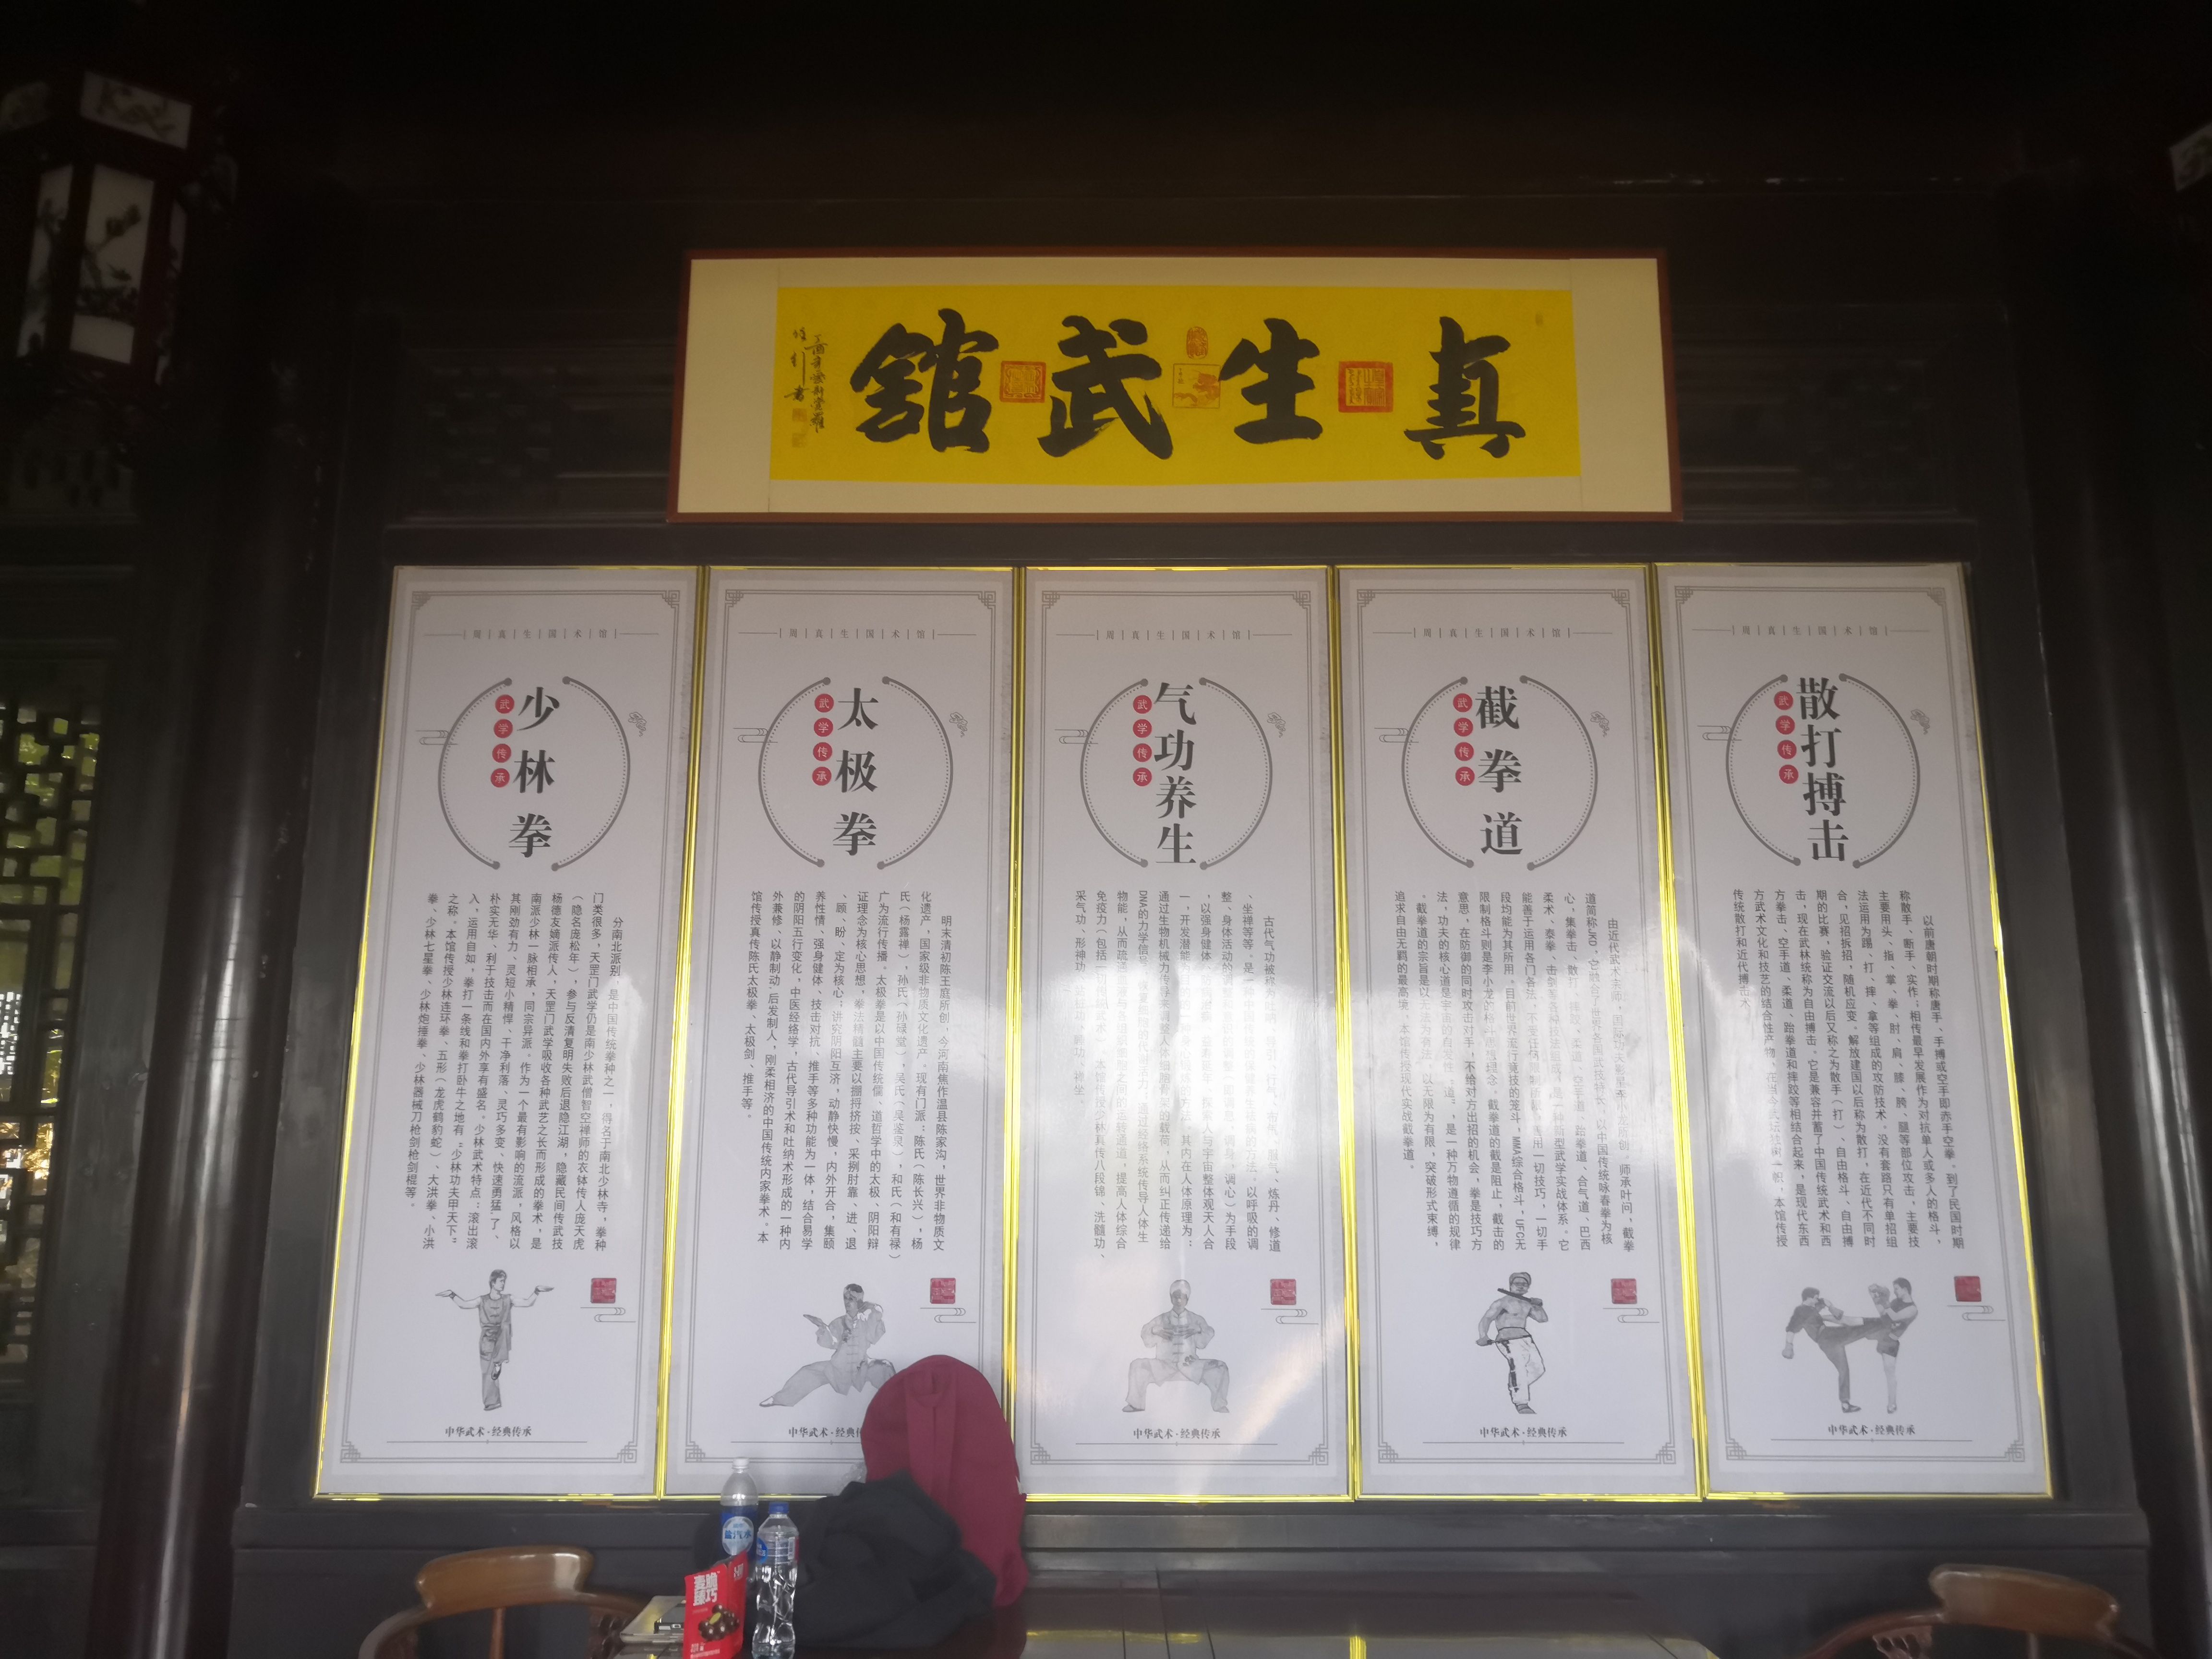 真生武館
周真生国术馆
少林拳
武学传承
分南北派别，是中国传统拳种之一，得名于南北少林寺，拳种
门类很多，天罡门武学仍是南少林武僧智空禅师的衣钵传人庞天虎
（隐名庞松年），参与反清复明失败后退隐江湖，隐藏民间传武技
杨德友嫡派传人，天罡门武学吸收各种武艺之长而形成的拳术，是
南派少林一脉相承，同宗异派。作为一个最有影响的流派，风格以
其刚劲有力、灵短小精悍、干净利落、灵巧多变、快速勇猛了、
朴实无华、利于技击而在国内外享有盛名。少林武术特点：滚出滚
入，运用自如，拳打一条线和拳打卧牛之地有“少林功夫甲天下”
之称。本馆传授少林连环拳、五形（龙虎鹤豹蛇）、大洪拳、小洪
拳、少林七星拳、少林炮捶拳、少林器械刀枪剑枪剑棍等。
中华武术·经典传承
周真生国术馆
太极拳
武学传承
明末清初陈王庭所创，今河南焦作温县陈家沟，世界非物质文
化遗产，国家级非物质文化遗产。现有门派：陈氏（陈长兴），杨
氏（杨露禅），孙氏（孙禄堂），吴氏（吴鉴泉），和氏（和有禄）
广为流行传播。太极拳是以中国传统儒、道哲学中的太极、阴阳辩
证理念为核心思想，拳法精髓主要以掤捋挤按、采挒肘靠、进、退
、顾、盼、定为核心；讲究阴阳互济，动静快慢，内外开合，集颐
养性情、强身健体、技击对抗、推手等多种功能为一体，结合易学
的阴阳五行变化，中医经络学，古代导引术和吐纳术形成的一种内
外兼修、以静制动、后发制人，刚柔相济的中国传统内家拳术。本
馆传授真传陈氏太极拳、太极剑、推手等。
中华武术·经典传
周真生国术馆
气功养生
武学传承
古代气功被称
服气、炼丹、修道
、坐禅等等。是一
的方法。以呼吸的调
整、身体活动的调
调身，调心）为手段
，以强身健体
人与宇宙整体观天人合
一，开发潜能
其内在人体原理为：
通过生物机械力传导
的载荷，从而纠正传递给
DNA的力学信息
经络系统传导人体生
物能，从而疏通
的运转通道，提高人体综合
免疫力（包括
少林真传八段锦、洗髓功、
采气功、形神功
中华武术·经典传承
周真生国术馆
截拳道
武学传承
由近代武术宗师
所创，师承叶问，截拳
道简称JKD，它融合
以中国传统咏春拳为核
心，集拳击、散打
空手道、跆拳道、合气道、巴西
柔术、泰拳、击剑
是一种新型武学实战体系。它
能善于运用各门各法，不受任何限制
善用一切技巧，一切手
段均能为其所用。目前世界流行竞技的笼斗，MMA综合格斗，UFC无
限制格斗则是李小龙的格斗思想理念。截拳道的截是阻止，截击的
意思，在防御的同时攻击对手，不给对方出招的机会，拳是技巧方
法，功夫的核心道是宇宙的自发性“道”，是一种万物道循的规律
。截拳道的宗旨是以无法为有法，以无限为有限，突破形式束缚，
追求自由无羁的最高境。本馆传授现代实战截拳道。
中华武术·经典传承
周真生国术馆
散打搏击
武学传承
以前唐朝时期称唐手、手搏或空手即赤手空拳。到了民国时期
称散手、断手、实作；相传最早发展作为对抗单人或多人的格斗，
主要用头、指、掌、拳、肘、肩、膝、胯、腿等部位攻击，主要技
法运用为踢、打、摔、拿等组成的攻防技术，没有套路只有单招组
合，见招拆招，随机应变。解放建国以后称为散打，在近代不同时
期的比赛，验证交流以后又称之为散手（打）、自由格斗、自由搏
击，现在武林统称为自由搏击。它是兼容并蓄了中国传统武术和西
方拳击、空手道、柔道、跆拳道和摔跤等相结合起来，是现代东西
方武术文化和技艺的结合性产物
本馆传授
传统散打和近代搏击术
中华武术·经典传承
盐汽水